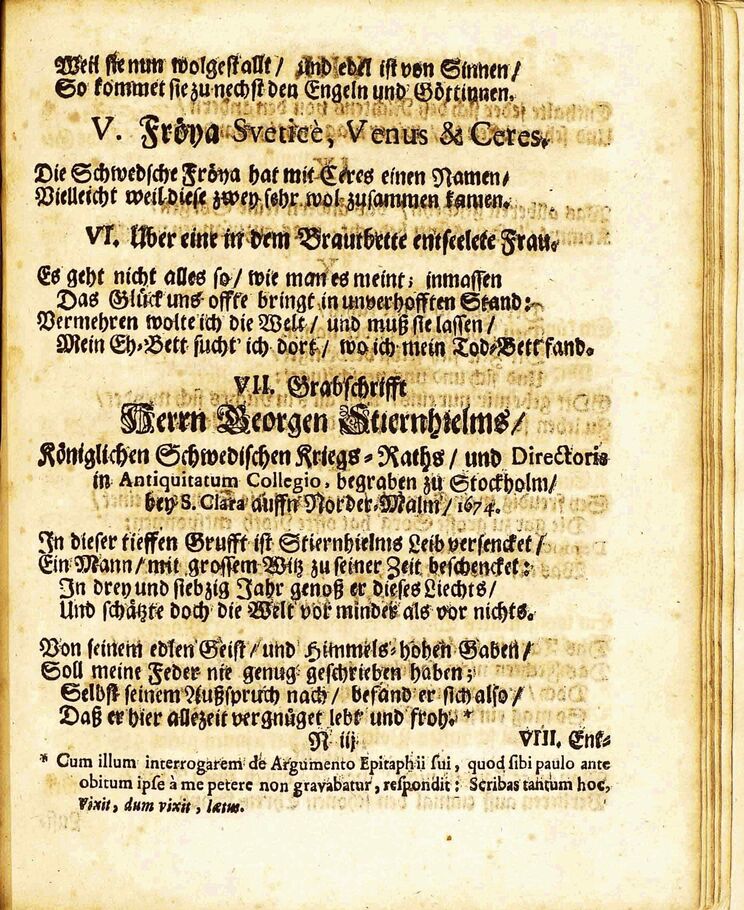 Weil sie nun wolgestallt / und edel ist von Sinnen /
So kommet sie zu nechst den Engeln und Göttinnen.
V. Fröya Sveticè, Venus & Ceres.
Die Schwedsche Fröya hat mit Ceres einen Namen /
Vielleicht weil diese zwey sehr wol zusammen kamen.
VI. Uber eine in dem Brautbette entseelete Frau.
Es geht nicht alles so / wie man es meint; inmassen
Das Glück uns offte bringt in unverhofften Stand:
Vermehren wolte ich die Welt / und muß sie lassen /
Mein Eh-Bett sucht' ich dort / wo ich mein Tod-Bett fand.
VII. Grabschrifft
Herrn Georgen Stiernhielms /
Königlichen Schwedischen Kriegs-Raths / und Directoris
in Antiquitatum Collegio, begraben zu Stockholm /
bey S. Clara auffn Norder-Malm / 1674.
In dieser tieffen Grufft ist Stiernhielms Leib versencket /
Ein Mann / mit grossem Witz zu seiner Zeit beschencket:
In drey und siebzig Jahr genoß er dieses Liechts /
Und schätzte doch die Welt vor minder als vor nichts.
Von seinem edlen Geist / und Himmels-hohen Gaben /
Soll meine Feder nie genug geschrieben haben;
Selbst seinem Außspruch nach / befand er sich also /
Daß er hier allezeit vergnüget lebt und froh. *
N iij VIII. Ent-
* Cum illum interrogarem de Argumento Epitaphii sui, quod sibi paulo ante
obitum ipse à me petere non gravabatur, respondit: Scribas tantum hoc,
Vixit, dum vixit, lætus.